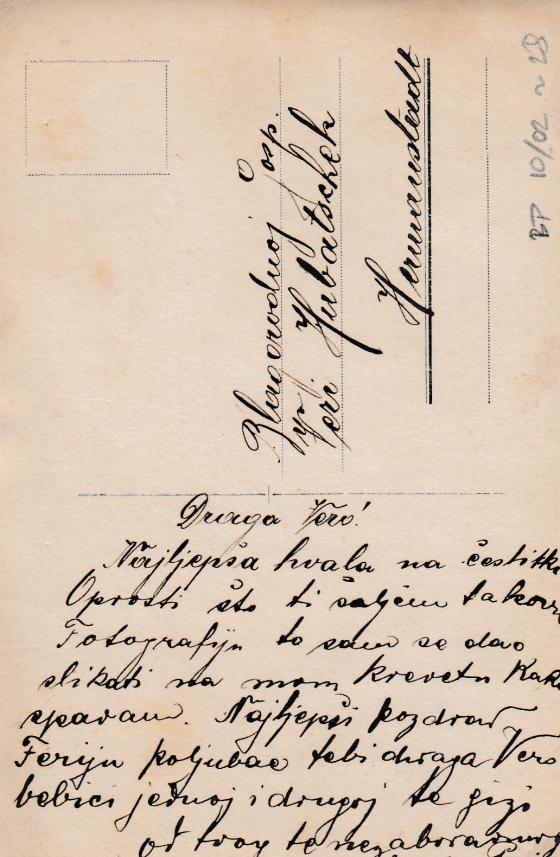 Blagorodnoj Gosp.
Veri Hubatschek
Hermannstadt
Draga Vero!
Najljepša hvala na čestitki
Oprosti što ti šaljem takovu
Fotografiju to sam se dao
slikati na mom krevetu Kako
spavam. Najljepši pozdrav
Feriju poljubac tebi draga Vero
bebici jednoj i drugoj te
od tvog te nezaboravnog